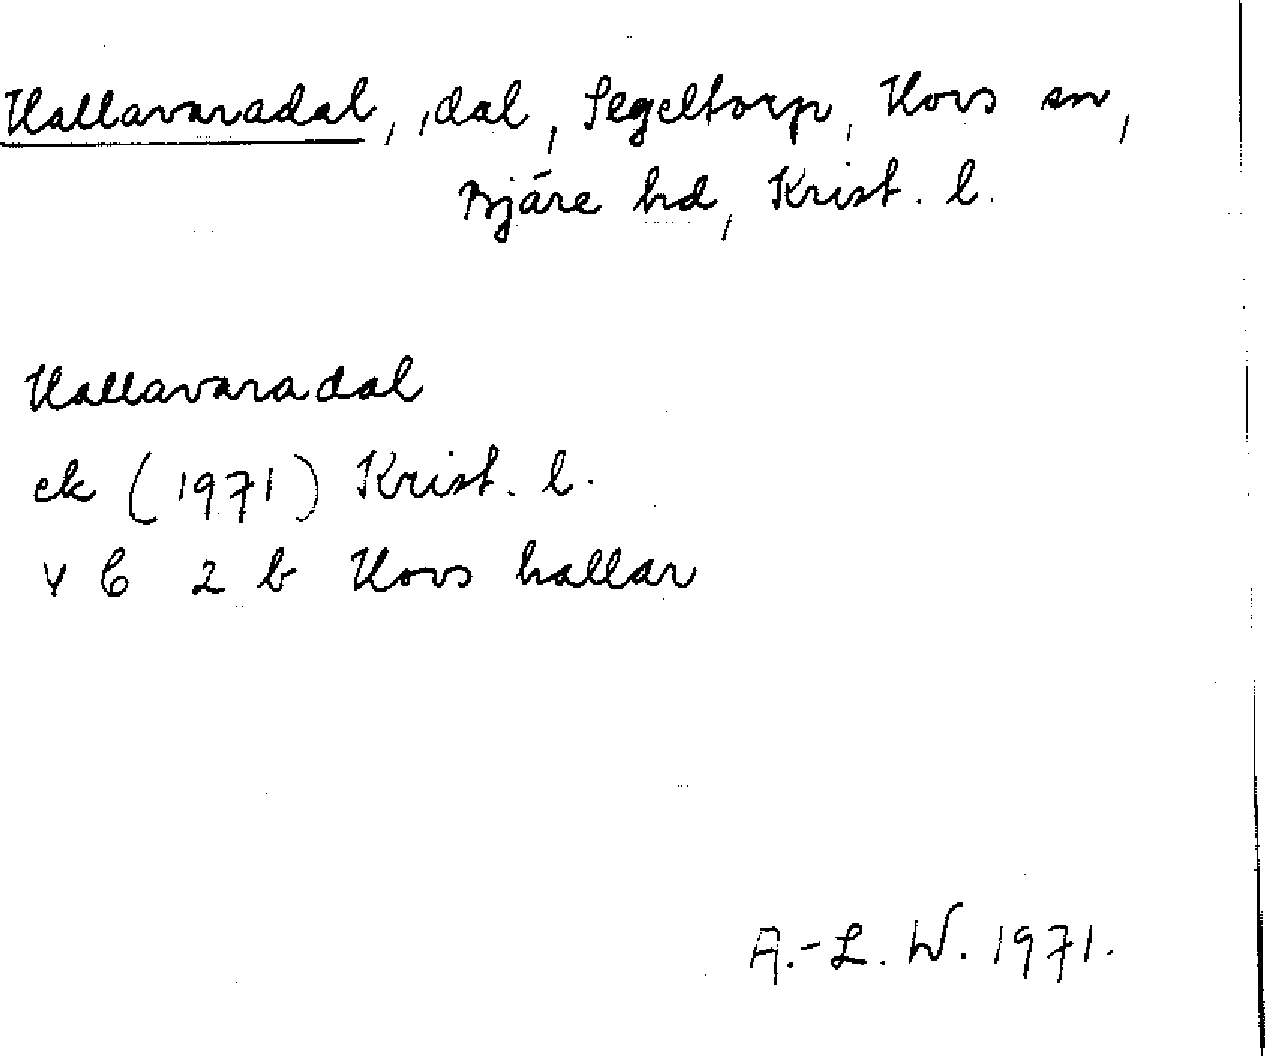 Hallavaradal, dal, Segeltorp, Hovs sn,
Bjäre hd, Krist. l.
Hallavaradal
ek (1971) Krist. l.
4 C 2 b Hovs hallar
A.-L. W. 1971.